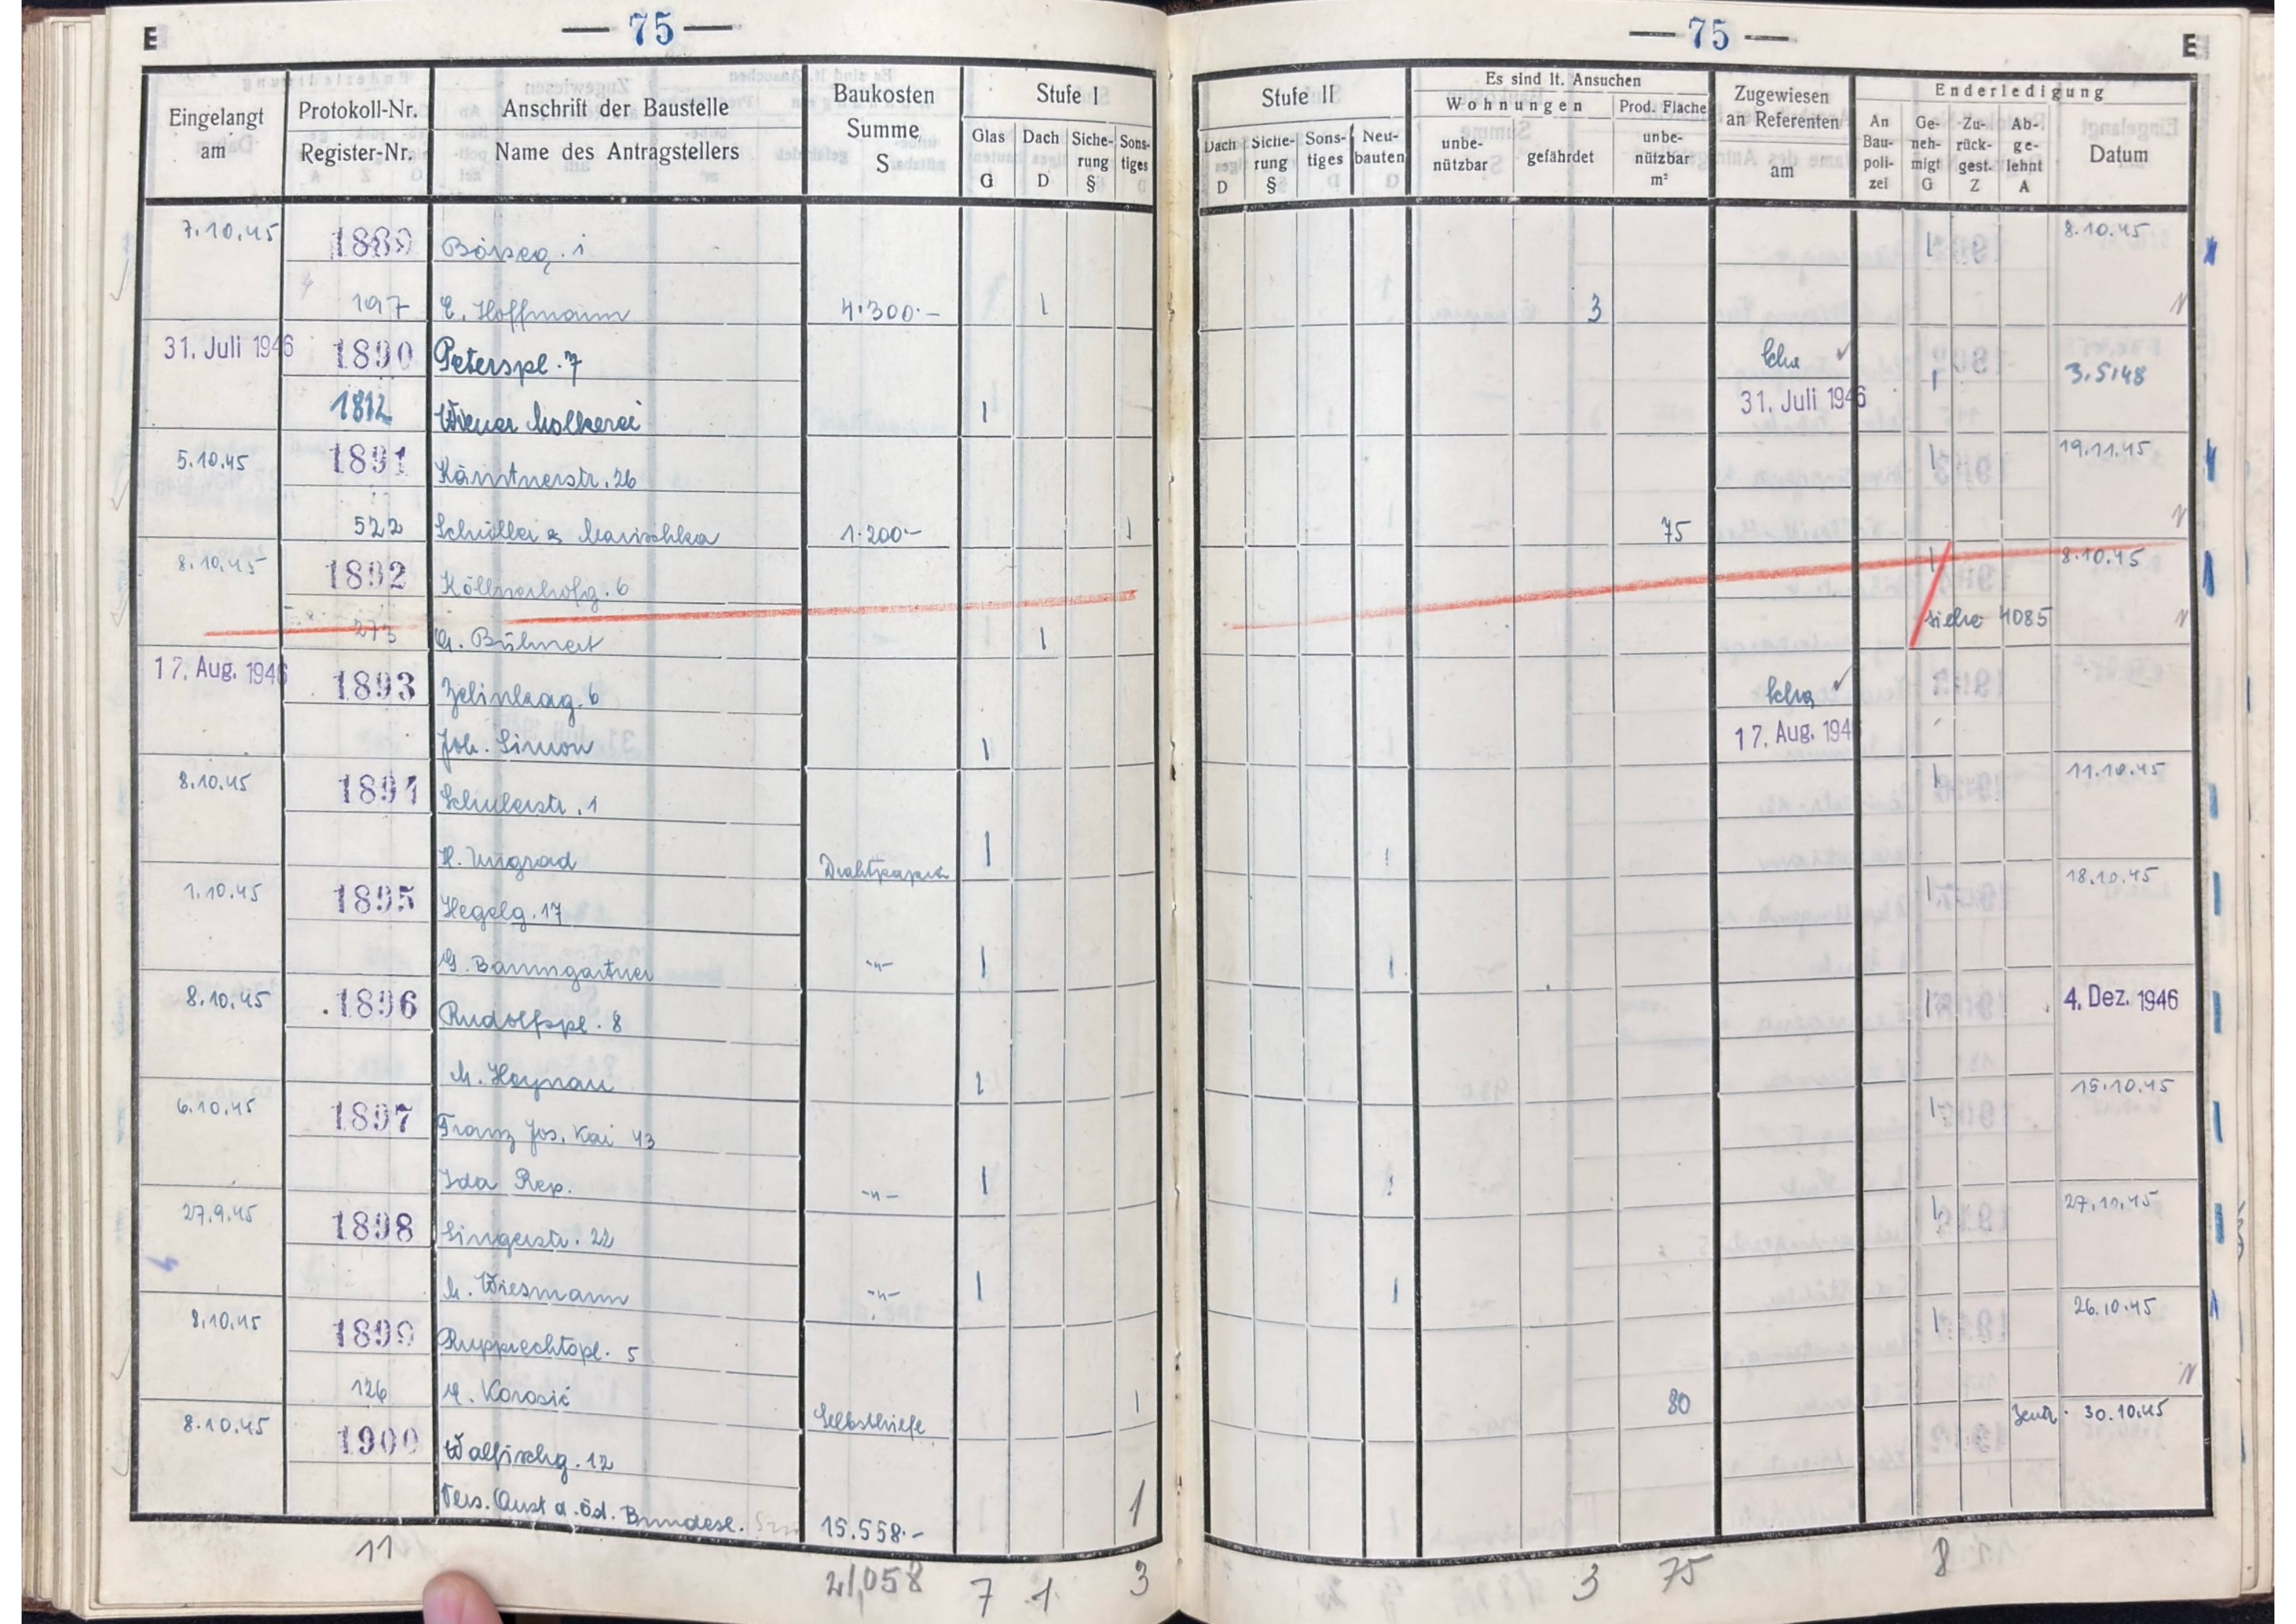 E — 75 —
— 75 — E
Eingelangt am
Protokoll-Nr.
Register-Nr.
Anschrift der Baustelle
Name des Antragstellers
Baukosten Summe S
Stufe I
Glas G
Dach D
Siche-rung §
Sons-tiges
Stufe II
Dach D
Siche-rung §
Sons-tiges
Neu-bauten
Es sind lt. Ansuchen
Wohnungen
unbe-nützbar
gefährdet
Prod. Fläche
unbe-nützbar m²
Zugewiesen an Referenten am
Enderledigung
An Bau-poli-zei
Ge-neh-migt G
Zu-rück-gest. Z
Ab-ge-lehnt A
Datum
7.10.45 1889 Börseg. 1 1 8.10.45
197 E. Hoffmann 4.300.- 1 3 N
31. Juli 1946 1890 Peterspl. 7 Scha ✓ 1 3.5.48
1812 Wiener Molkerei 1 31. Juli 1946
5.10.45 1891 Kärntnerstr. 26 1 19.11.45
522 Schöller & Marischka 1.200.- 1 75 N
8.10.45 1892 Köllnerhofg. 6 1 8.10.45
273 G. Bühnert 1 siehe 4085 N
17. Aug. 1946 1893 Zelinkag. 6 Scha ✓
Joh. Simon 1 17. Aug. 194
8.10.45 1894 Schulerstr. 1 1 11.10.45
H. Ungrad Drahtpapier 1 1
1.10.45 1895 Hegelg. 17 1 18.10.45
G. Baumgartner -"- 1 1
8.10.45 1896 Rudolfspl. 8 1 4. Dez. 1946
M. Heynau 1
6.10.45 1897 Franz Jos. Kai 43 1 15.10.45
Ida Rep. -"- 1 1
27.9.45 1898 Singerstr. 22 1 27.10.45
M. Wiesmann -"- 1 1
8.10.45 1899 Rupprechtspl. 5 1 26.10.45
126 M. Korosić Selbsthilfe 1 80 N
8.10.45 1900 Walfischg. 12 Zentr. 30.10.45
Vers. Anst d. öst. Bundesl. 15.558.- 1
11 21,058 7 1 3 3 75 8